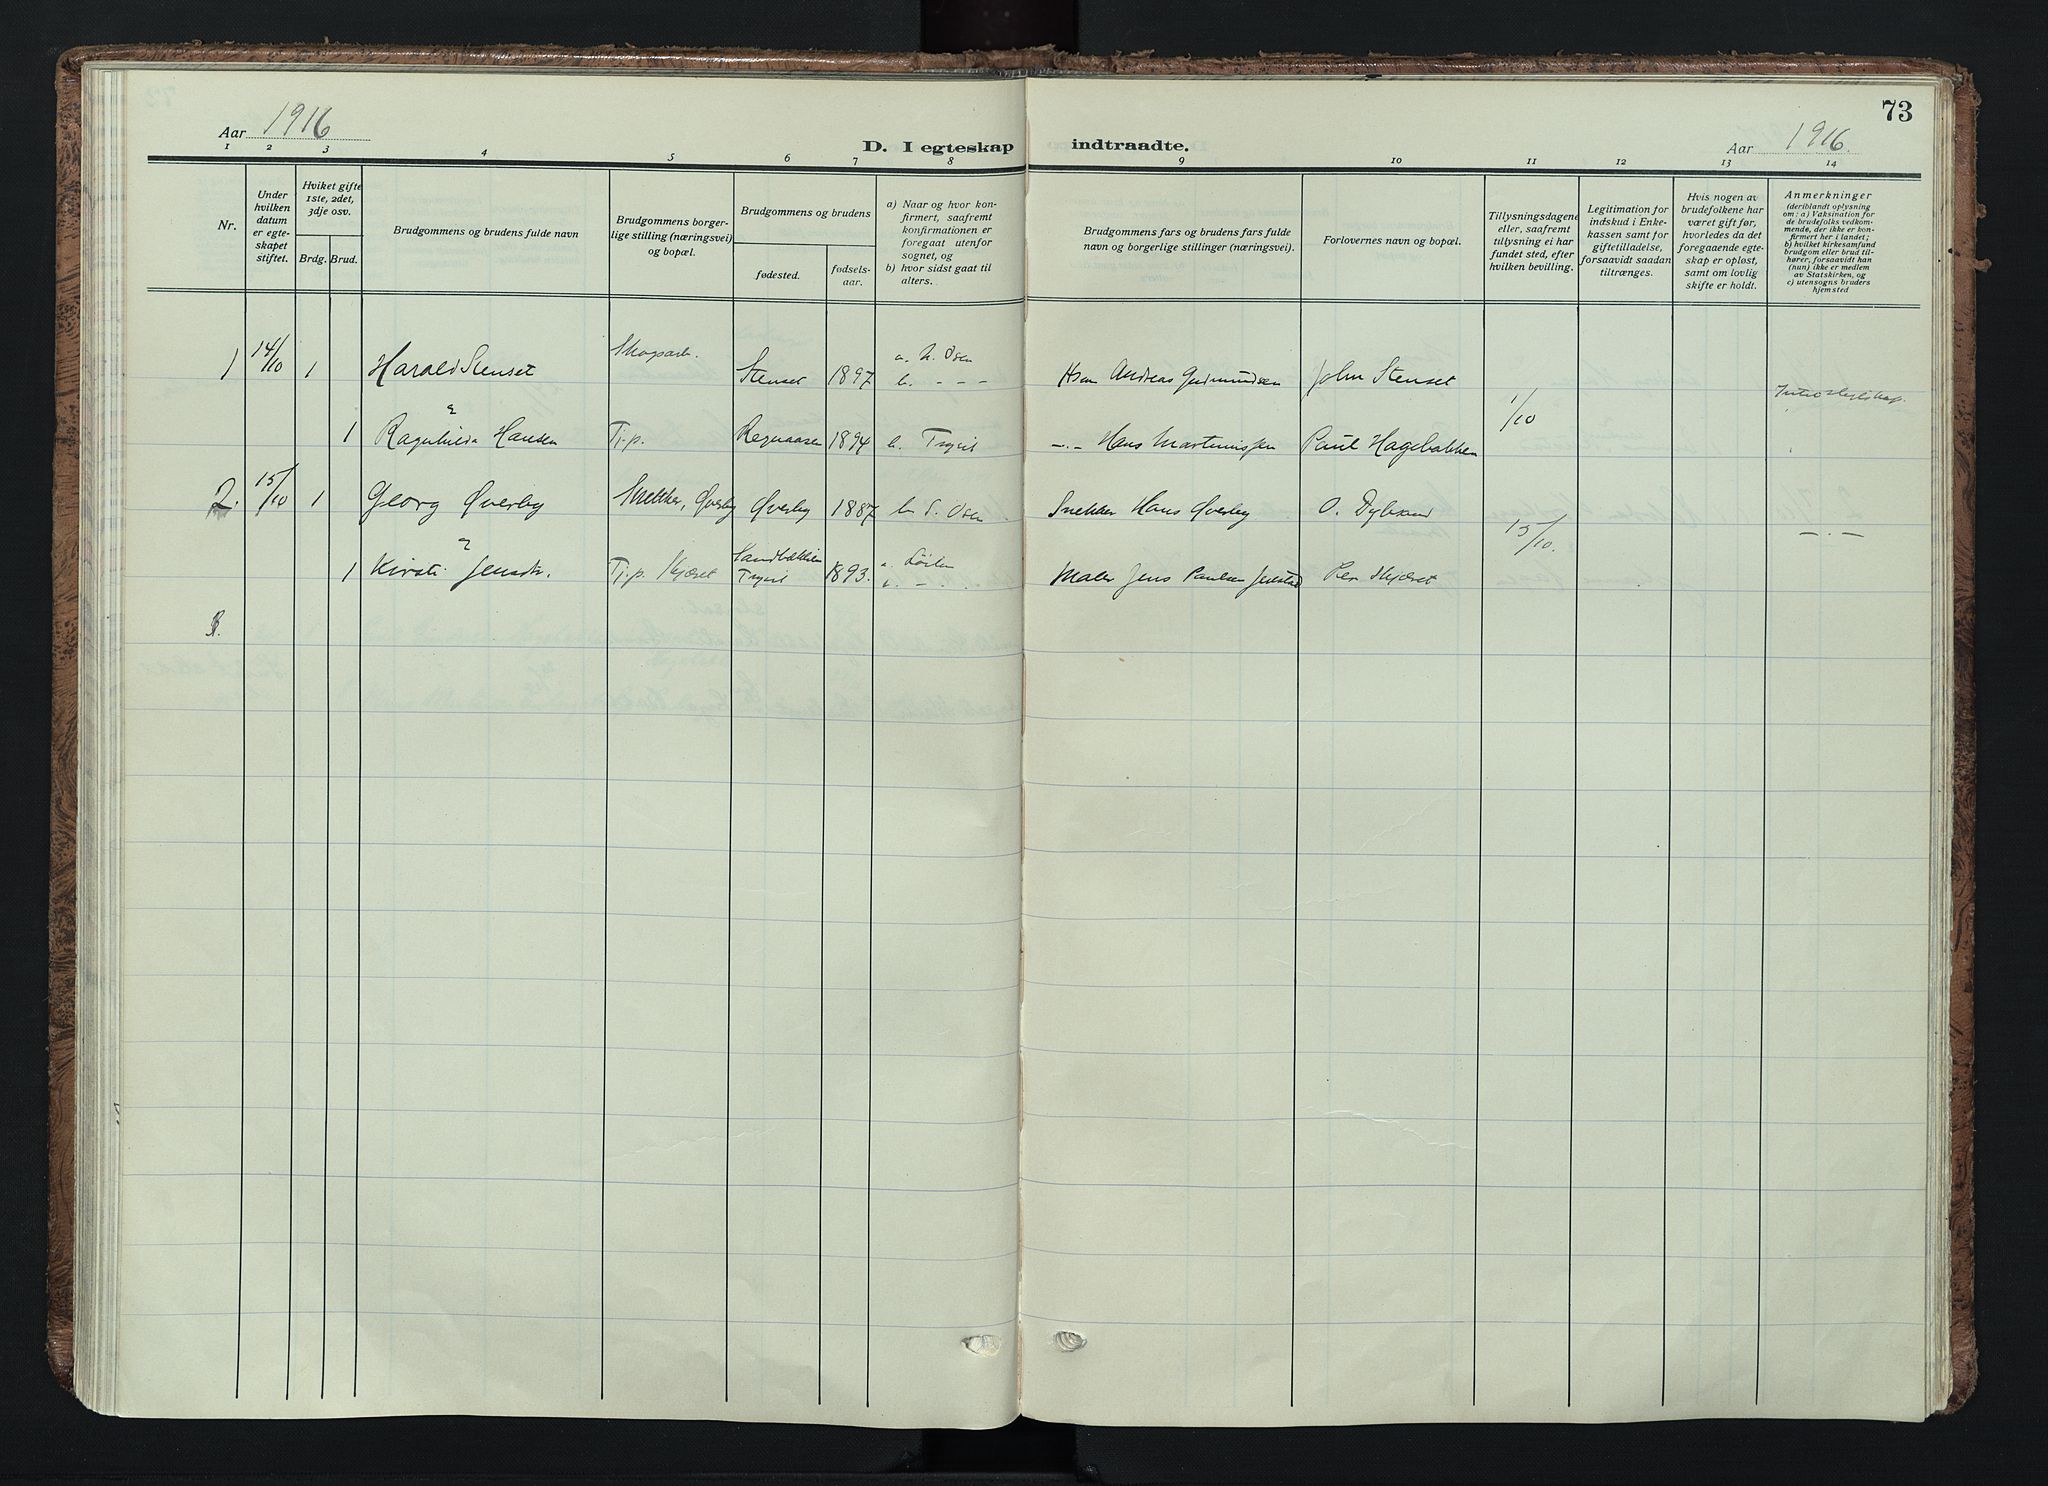 73
Aar 1916
D. I egteskap indtraadte.
Aar 1916.
1 2 3 4 5 6 7 8 9 10 11 12 13 14
Nr.
Under
hvilken
datum
er egte-
skapet
stiftet.
Hviket gifte
1ste, 2det,
3dje osv.
Brdg. Brud.
Brudgommens og brudens fulde navn
Brudgommens borger-
lige stilling (næringsvei)
og bopæl.
Brudgommens og brudens
fødested.
fødsels-
aar.
a) Naar og hvor kon-
firmert, saafremt
konfirmationen er
foregaat utenfor
sognet, og
b) hvor sidst gaat til
alters.
Brudgommens fars og brudens fars fulde
navn og borgerlige stillinger (næringsvei).
Forlovernes navn og bopæl.
Tillysningsdagene
eller, saafremt
tillysning ei har
fundet sted, efter
hvilken bevilling.
Legitimation for
indskud i Enke-
kassen samt for
giftetilladelse,
forsaavidt saadan
tiltrænges.
Hvis nogen av
brudefolkene har
været gift før,
hvorledes da det
foregaaende egte-
skap er opløst,
samt om lovlig
skifte er holdt.
Anmerkninger
(deriblandt oplysning
om: a) Vaksination for
de brudefolks vedkom-
mende, der ikke er kon-
firmert her i landet;
b) hvilket kirkesamfund
brudgom eller brud til-
hører, forsaavidt han
(hun) ikke er medlem
av Statskirken, og
c) utensogns bruders
hjemsted
1 14/10 1 Harald Stenset Skogsarb. Stenset 1897 a. N. Osen Andreas Gudmundsen John Stenset
b. - - -
& 1/10
1 Ragnhilda Hansen Tj.p. Regnaasen 1894 b. Trysil -.- Hans Martinussen Paul Hagebakken
2. 15/10 1 Georg Øverby Snekker, Øverby Øverby 1887 b. S. Osen Snekker Hans Øverby O.
& 15/10. -.-
1 Kirsti Jensdtr. Tj.p. Kjæret Sandbakken 1893. a. Løiten Maler Jens Paulsen Per Kjæret
Trysil b. - . -
3.